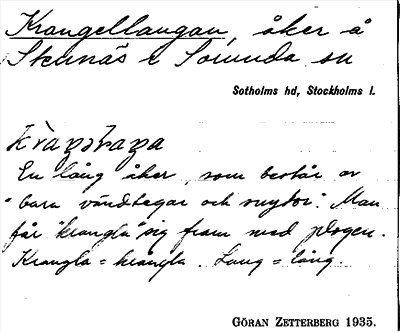 Krangellangan, åker å
Skarnäs i Sorunda sn
Sotholms hd, Stockholms l.
En lång åker, som består av
"bara vändtegar och snytor". Man
får "krangla" sig fram med plogen.
Krangla = krångla. Lang = lång.
GÖRAN ZETTERBERG 1935.